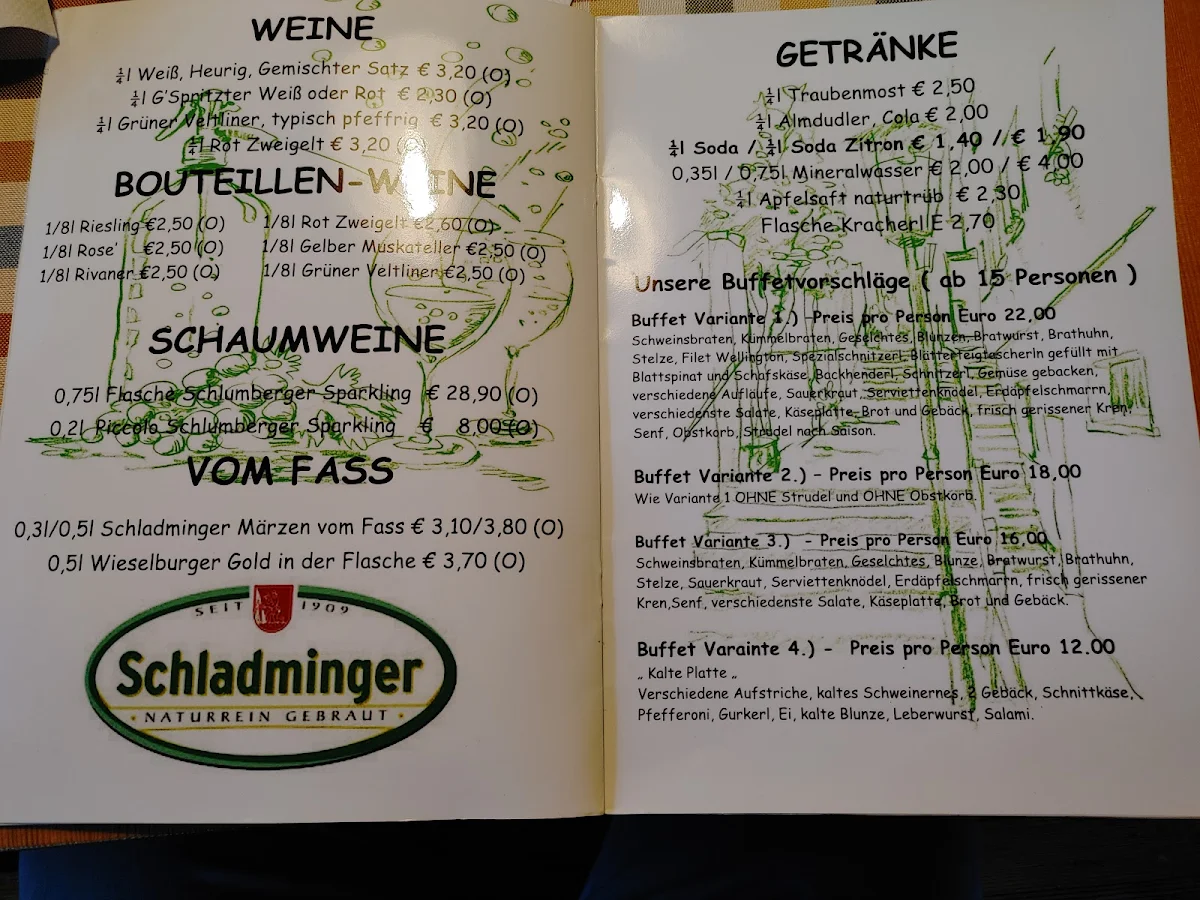 WEINE
¼l Weiß, Heurig, Gemischter Satz € 3,20 (O)
¼l G'Spritzter Weiß oder Rot € 2,30 (O)
¼l Grüner Veltliner, typisch pfeffrig € 3,20 (O)
¼l Rot Zweigelt € 3,20 (O)
BOUTEILLEN-WEINE
1/8l Riesling €2,50 (O) 1/8l Rot Zweigelt €2,60 (O)
1/8l Rose' €2,50 (O) 1/8l Gelber Muskateller €2,50 (O)
1/8l Rivaner €2,50 (O) 1/8l Grüner Veltliner €2,50 (O)
SCHAUMWEINE
0,75l Flasche Schlumberger Sparkling € 28,90 (O)
0,2l Piccolo Schlumberger Sparkling € 8,00 (O)
VOM FASS
0,3l/0,5l Schladminger Märzen vom Fass € 3,10/3,80 (O)
0,5l Wieselburger Gold in der Flasche € 3,70 (O)
SEIT 1909
Schladminger
NATURREIN GEBRAUT
GETRÄNKE
¼l Traubenmost € 2,50
¼l Almdudler, Cola € 2,00
¼l Soda / ¼l Soda Zitron € 1,40 // € 1,90
0,35l / 0,75l Mineralwasser € 2,00 / € 4,00
¼l Apfelsaft naturtrüb € 2,30
Flasche Kracherl E 2,70
Unsere Buffetvorschläge ( ab 15 Personen )
Buffet Variante 1.) -Preis pro Person Euro 22,00
Schweinsbraten, Kümmelbraten, Geselchtes, Blunzen, Bratwurst, Brathuhn,
Stelze, Filet Wellington, Spezialschnitzerl, Blätterteigtascherln gefüllt mit
Blattspinat und Schafskäse, Backhenderl, Schnitzerl, Gemüse gebacken,
verschiedene Aufläufe, Sauerkraut, Serviettenknödel, Erdäpfelschmarrn,
verschiedenste Salate, Käseplatte-Brot und Gebäck, frisch gerissener Kren,
Senf, Obstkorb, Strudel nach Saison.
Buffet Variante 2.) - Preis pro Person Euro 18,00
Wie Variante 1 OHNE Strudel und OHNE Obstkorb.
Buffet Variante 3.) - Preis pro Person Euro 16,00
Schweinsbraten, Kümmelbraten, Geselchtes, Blunze, Bratwurst, Brathuhn,
Stelze, Sauerkraut, Serviettenknödel, Erdäpfelschmarrn, frisch gerissener
Kren,Senf, verschiedenste Salate, Käseplatte, Brot und Gebäck.
Buffet Varainte 4.) - Preis pro Person Euro 12.00
„ Kalte Platte „
Verschiedene Aufstriche, kaltes Schweinernes, 2 Gebäck, Schnittkäse,
Pfefferoni, Gurkerl, Ei, kalte Blunze, Leberwurst, Salami.